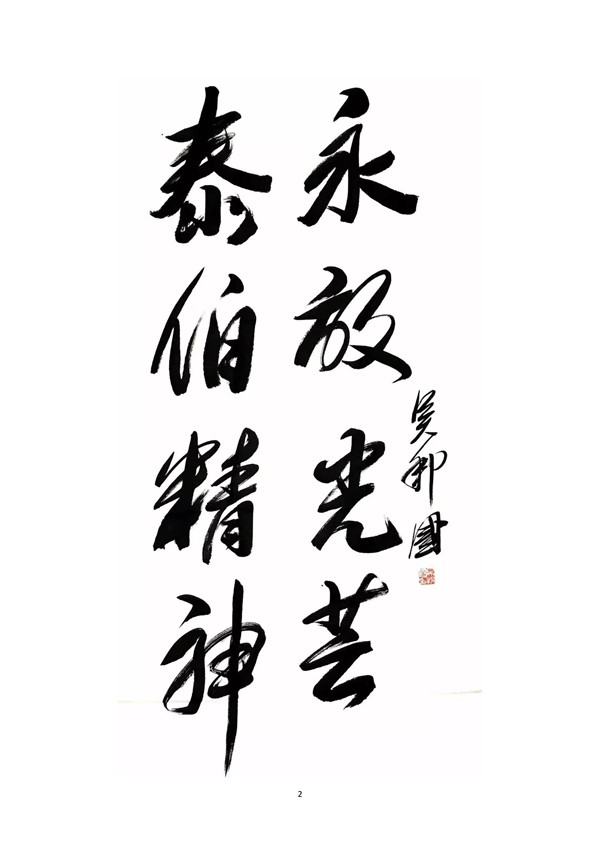 泰伯精神
永放光芒
吴邦国
2